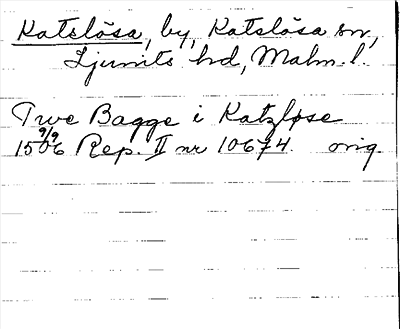 Katslösa, by, Katslösa sn,
Ljunits hd, Malm. l.
Twe Bagge i Katzløse
9/9
1506 Rep. II nr 10674. orig.